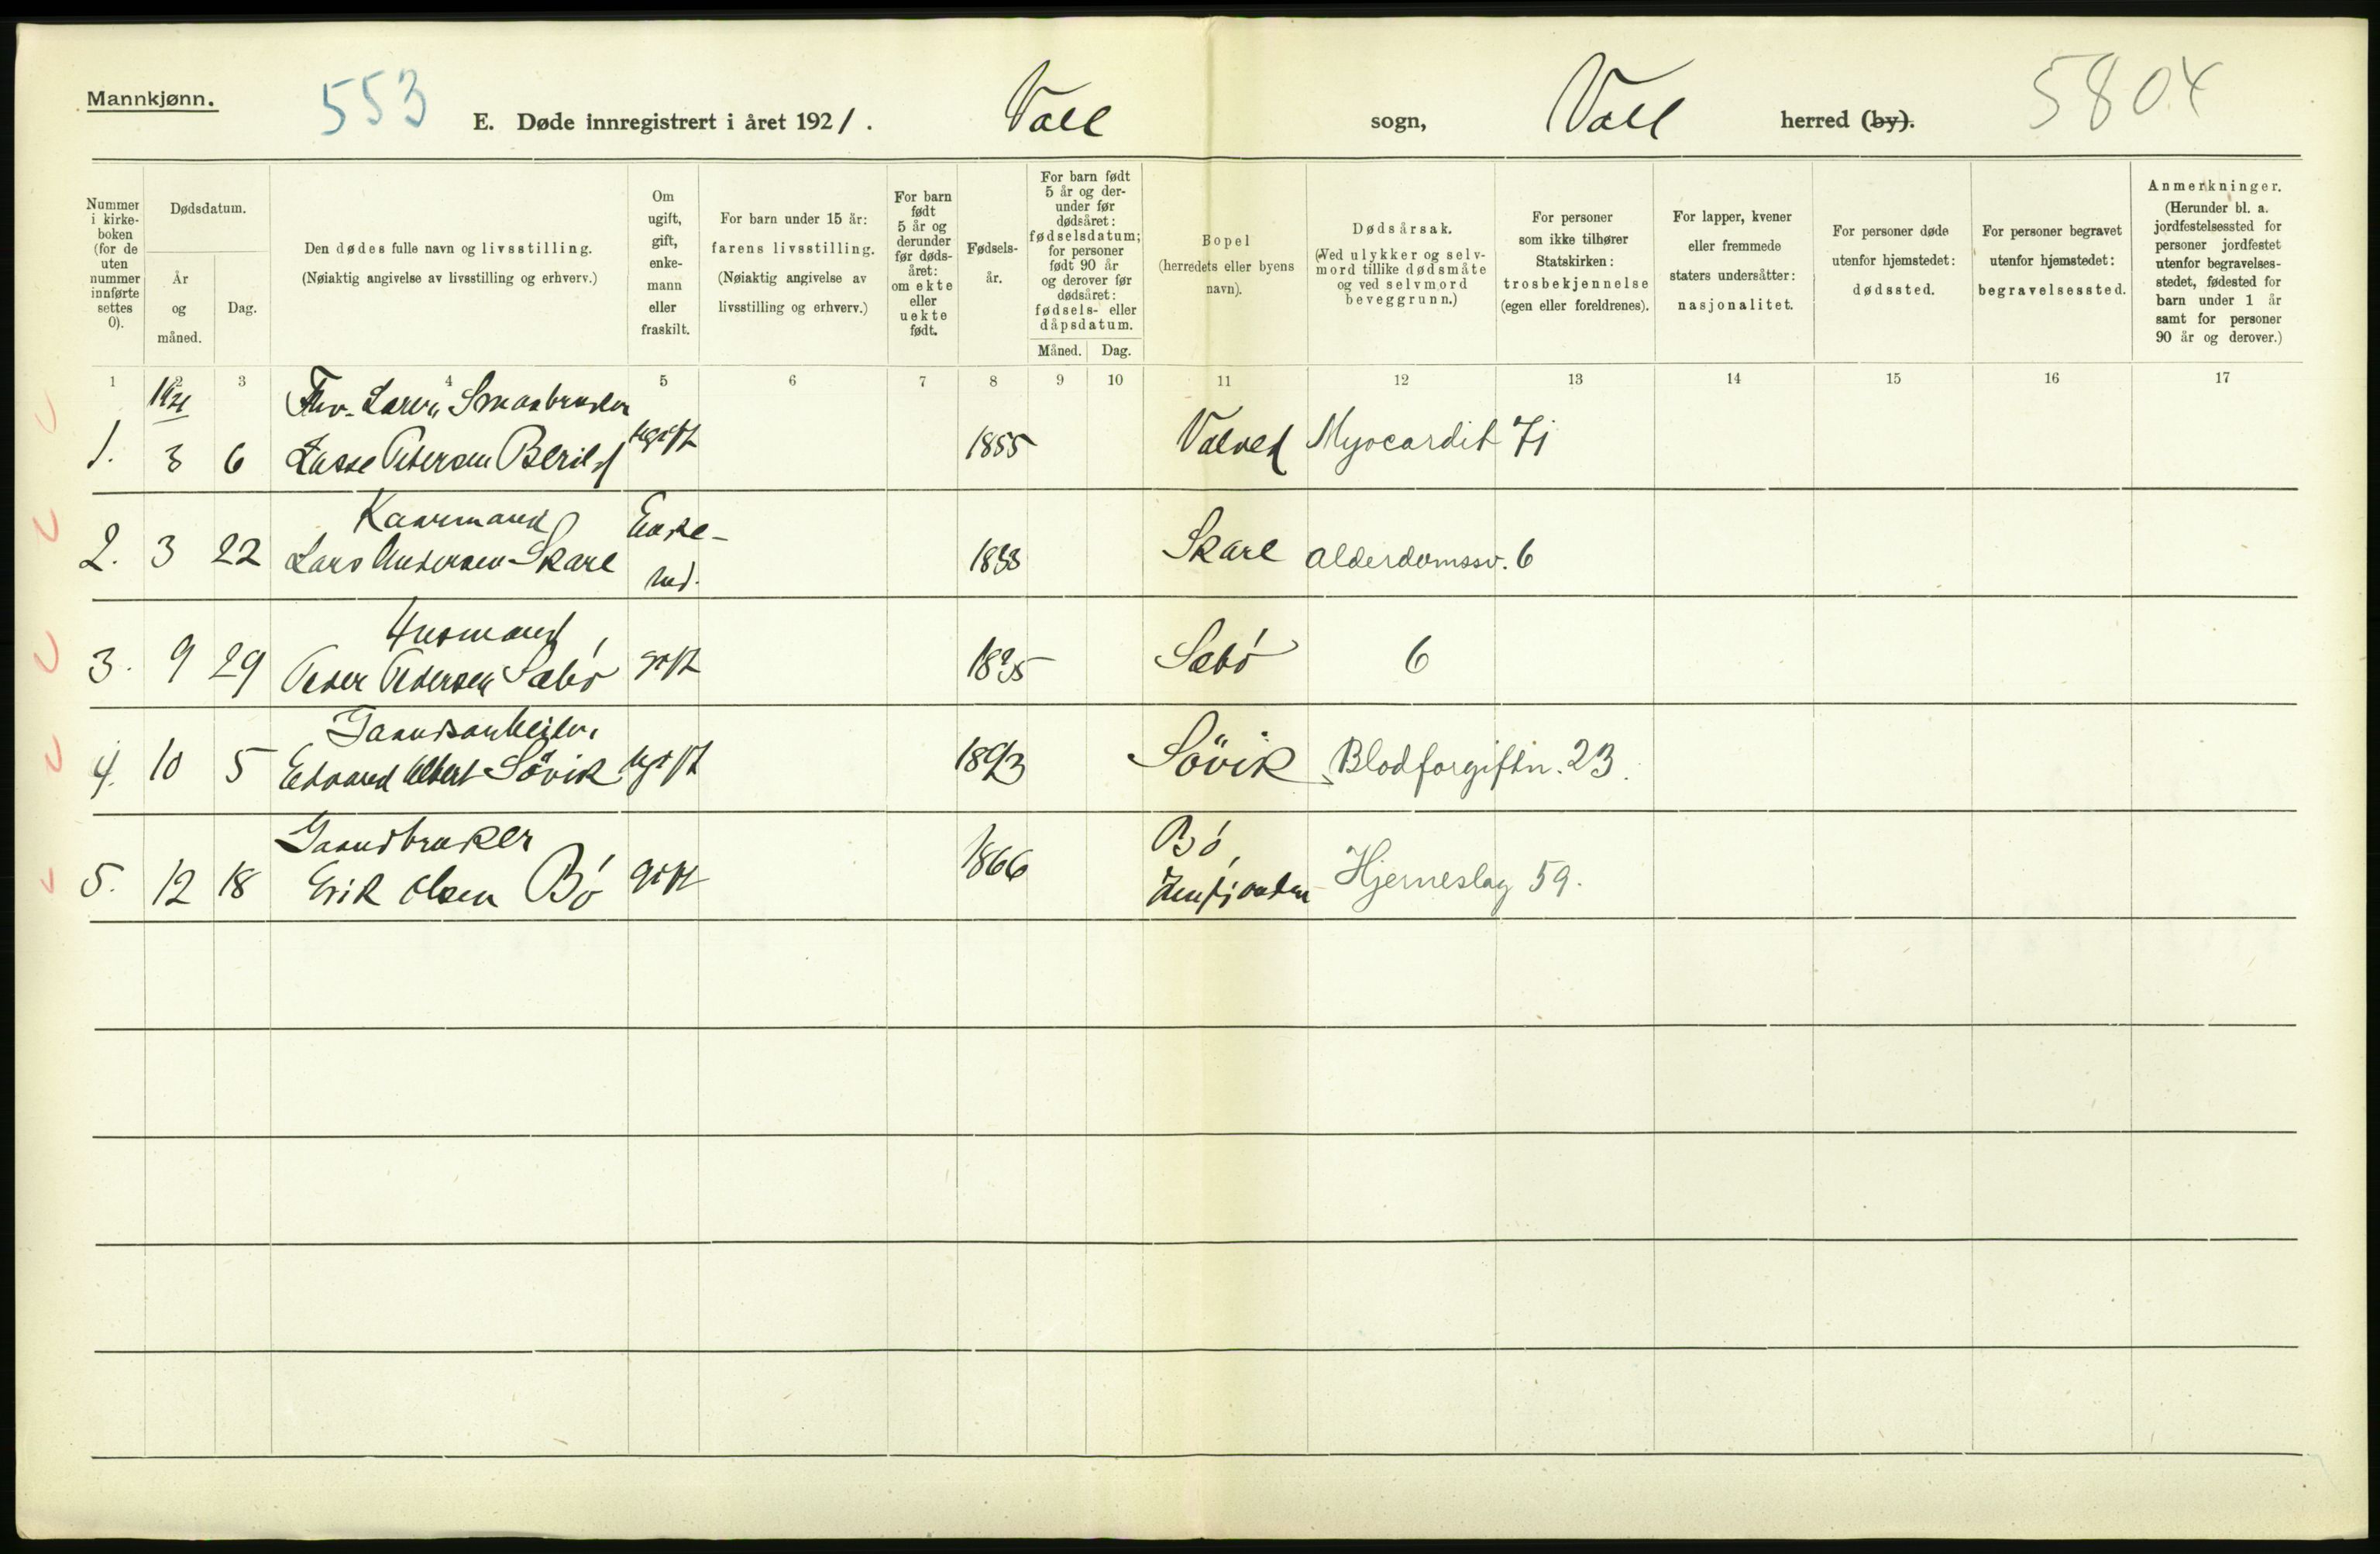 Mannkjønn.
553
E. Døde innregistrert i året 1921. Voll sogn, Voll herred (by).
5804
Nummer i kirke-boken (for de uten nummer innførte settes 0).
Dødsdatum.
År og måned.
Dag.
Den dødes fulle navn og livsstilling.
(Nøiaktig angivelse av livsstilling og erhverv.)
Om ugift, gift, enke-mann eller fraskilt.
For barn under 15 år:
farens livsstilling.
(Nøiaktig angivelse av livsstilling og erhverv.)
For barn født 5 år og derunder før døds-året: om ekte eller uekte født.
Fødsels-år.
For barn født 5 år og der-under før dødsåret: fødselsdatum; for personer født 90 år og derover før dødsåret: fødsels- eller dåpsdatum.
Måned. Dag.
Bopel
(herredets eller byens navn).
Dødsårsak.
(Ved ulykker og selv-mord tillike dødsmåte og ved selvmord beveggrunn.)
For personer som ikke tilhører Statskirken: trosbekjennelse (egen eller foreldrenes).
For lapper, kvener eller fremmede staters undersåtter: nasjonalitet.
For personer døde utenfor hjemstedet: dødssted.
For personer begravet utenfor hjemstedet: begravelsessted.
Anmerkninger.
(Herunder bl. a. jordfestelsessted for personer jordfestet utenfor begravelses-stedet, fødested for barn under 1 år samt for personer 90 år og derover.)
1 2 3 4 5 6 7 8 9 10 11 12 13 14 15 16 17
1921
1. 3 6 Lasse Petersen ugift 1855 Myocardit 71
Kaarmand
2. 3 22 Lars Andersen Skare Enke-md. Skare Alderdomssv. 6
Husmand
3. 9 29 Peder Pedersen Sæbø gift 1835 Sæbø 6
Gaardsarbeider
4. 10 5 Edvard Albert Sövik ugift 1893 Sövik Blodforgiftn. 23.
Gaardbruker
5. 12 18 Erik Olsen Bø gift 1866 Bø, Hjerneslag 59.